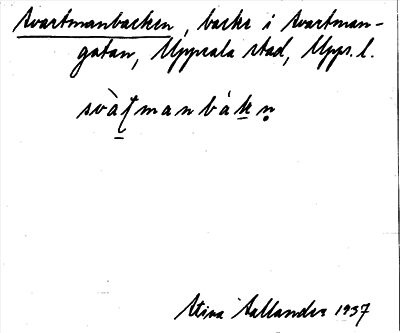 Svartmanbacken, backe i Svartman-
gatan, Uppsala stad, Upps. l.
svàʈmanbákn̥
Stina Sallander 1937